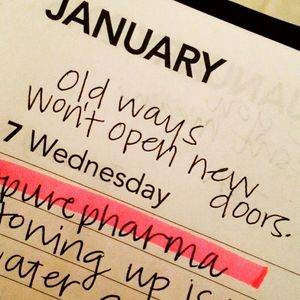 JANUARY
Old ways
won't open new
doors.
7 Wednesday
purepharma
toning up is
water